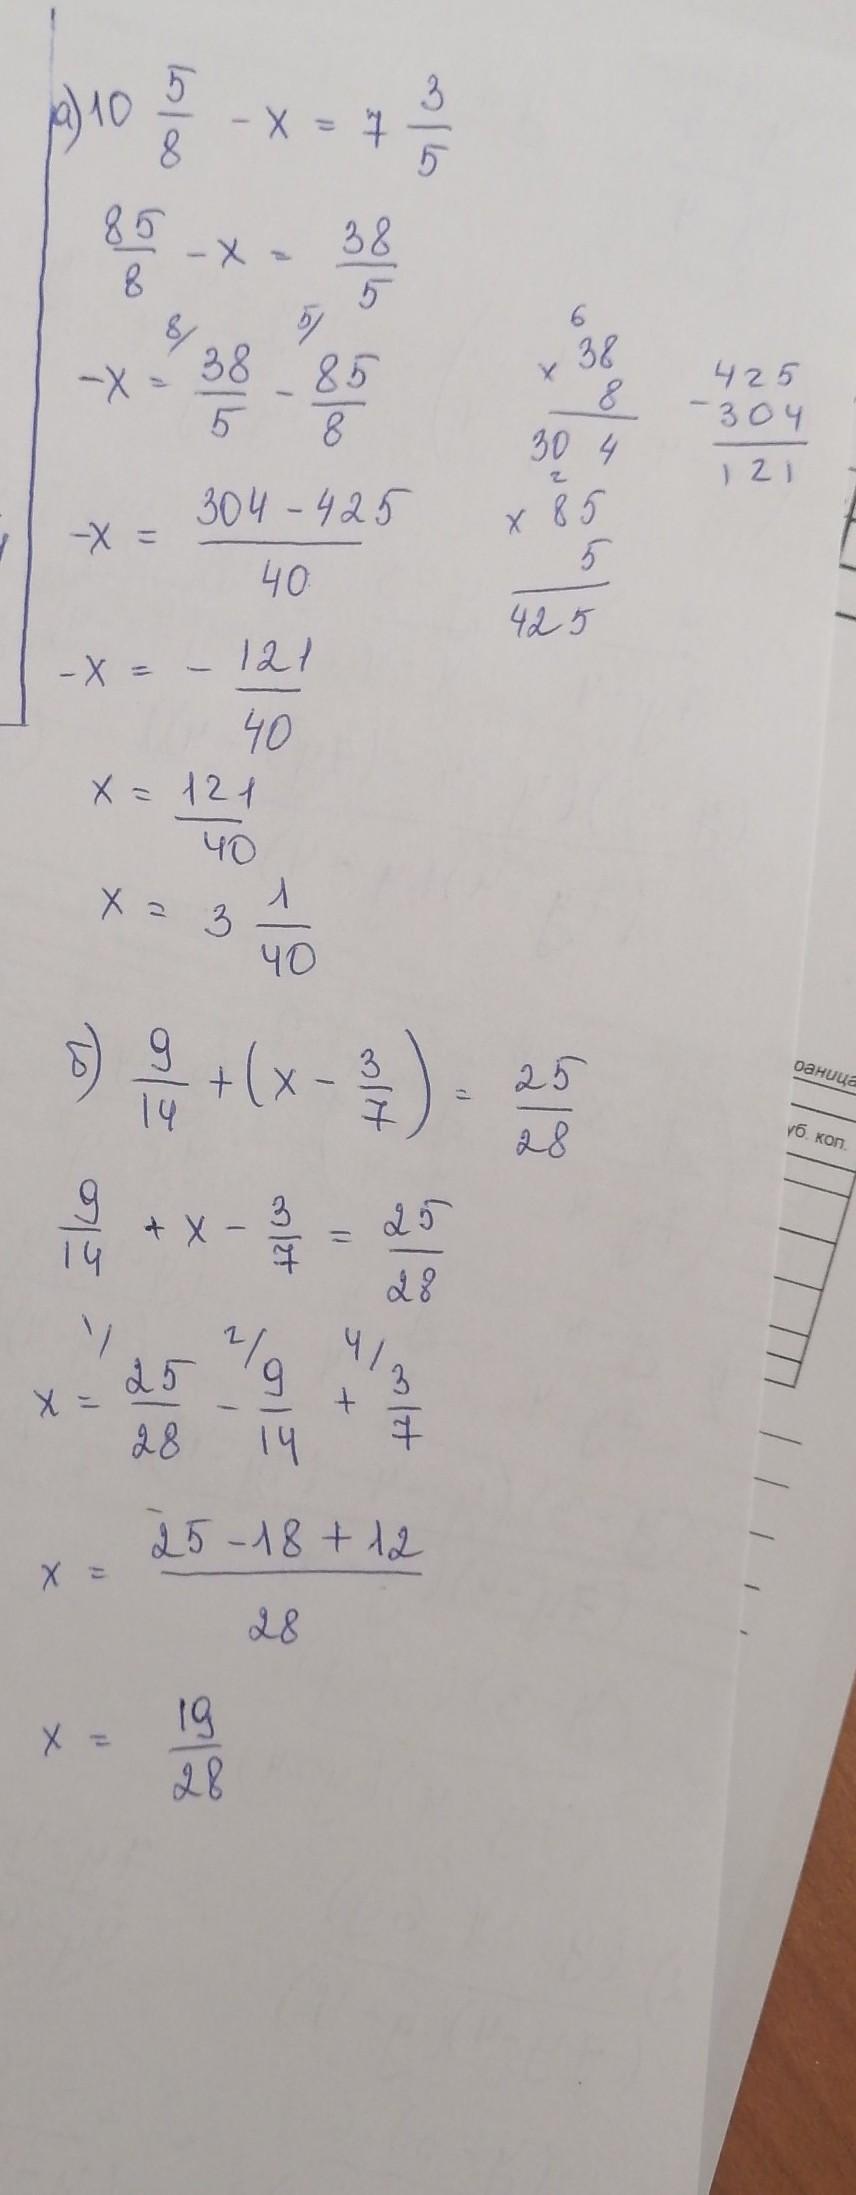 а) 10 5/8 - x = 7 3/5
85/8 - x = 38/5
8/ 5/
-x = 38/5 - 85/8
-x = 304 - 425 / 40
-x = - 121/40
x = 121/40
x = 3 1/40
6
x 38
8
30 4
2
x 85
5
425
- 425
304
121
б) 9/14 + (x - 3/7) = 25/28
9/14 + x - 3/7 = 25/28
1/ 2/ 4/
x = 25/28 - 9/14 + 3/7
x = 25 - 18 + 12 / 28
x = 19/28
раница
уб. коп.